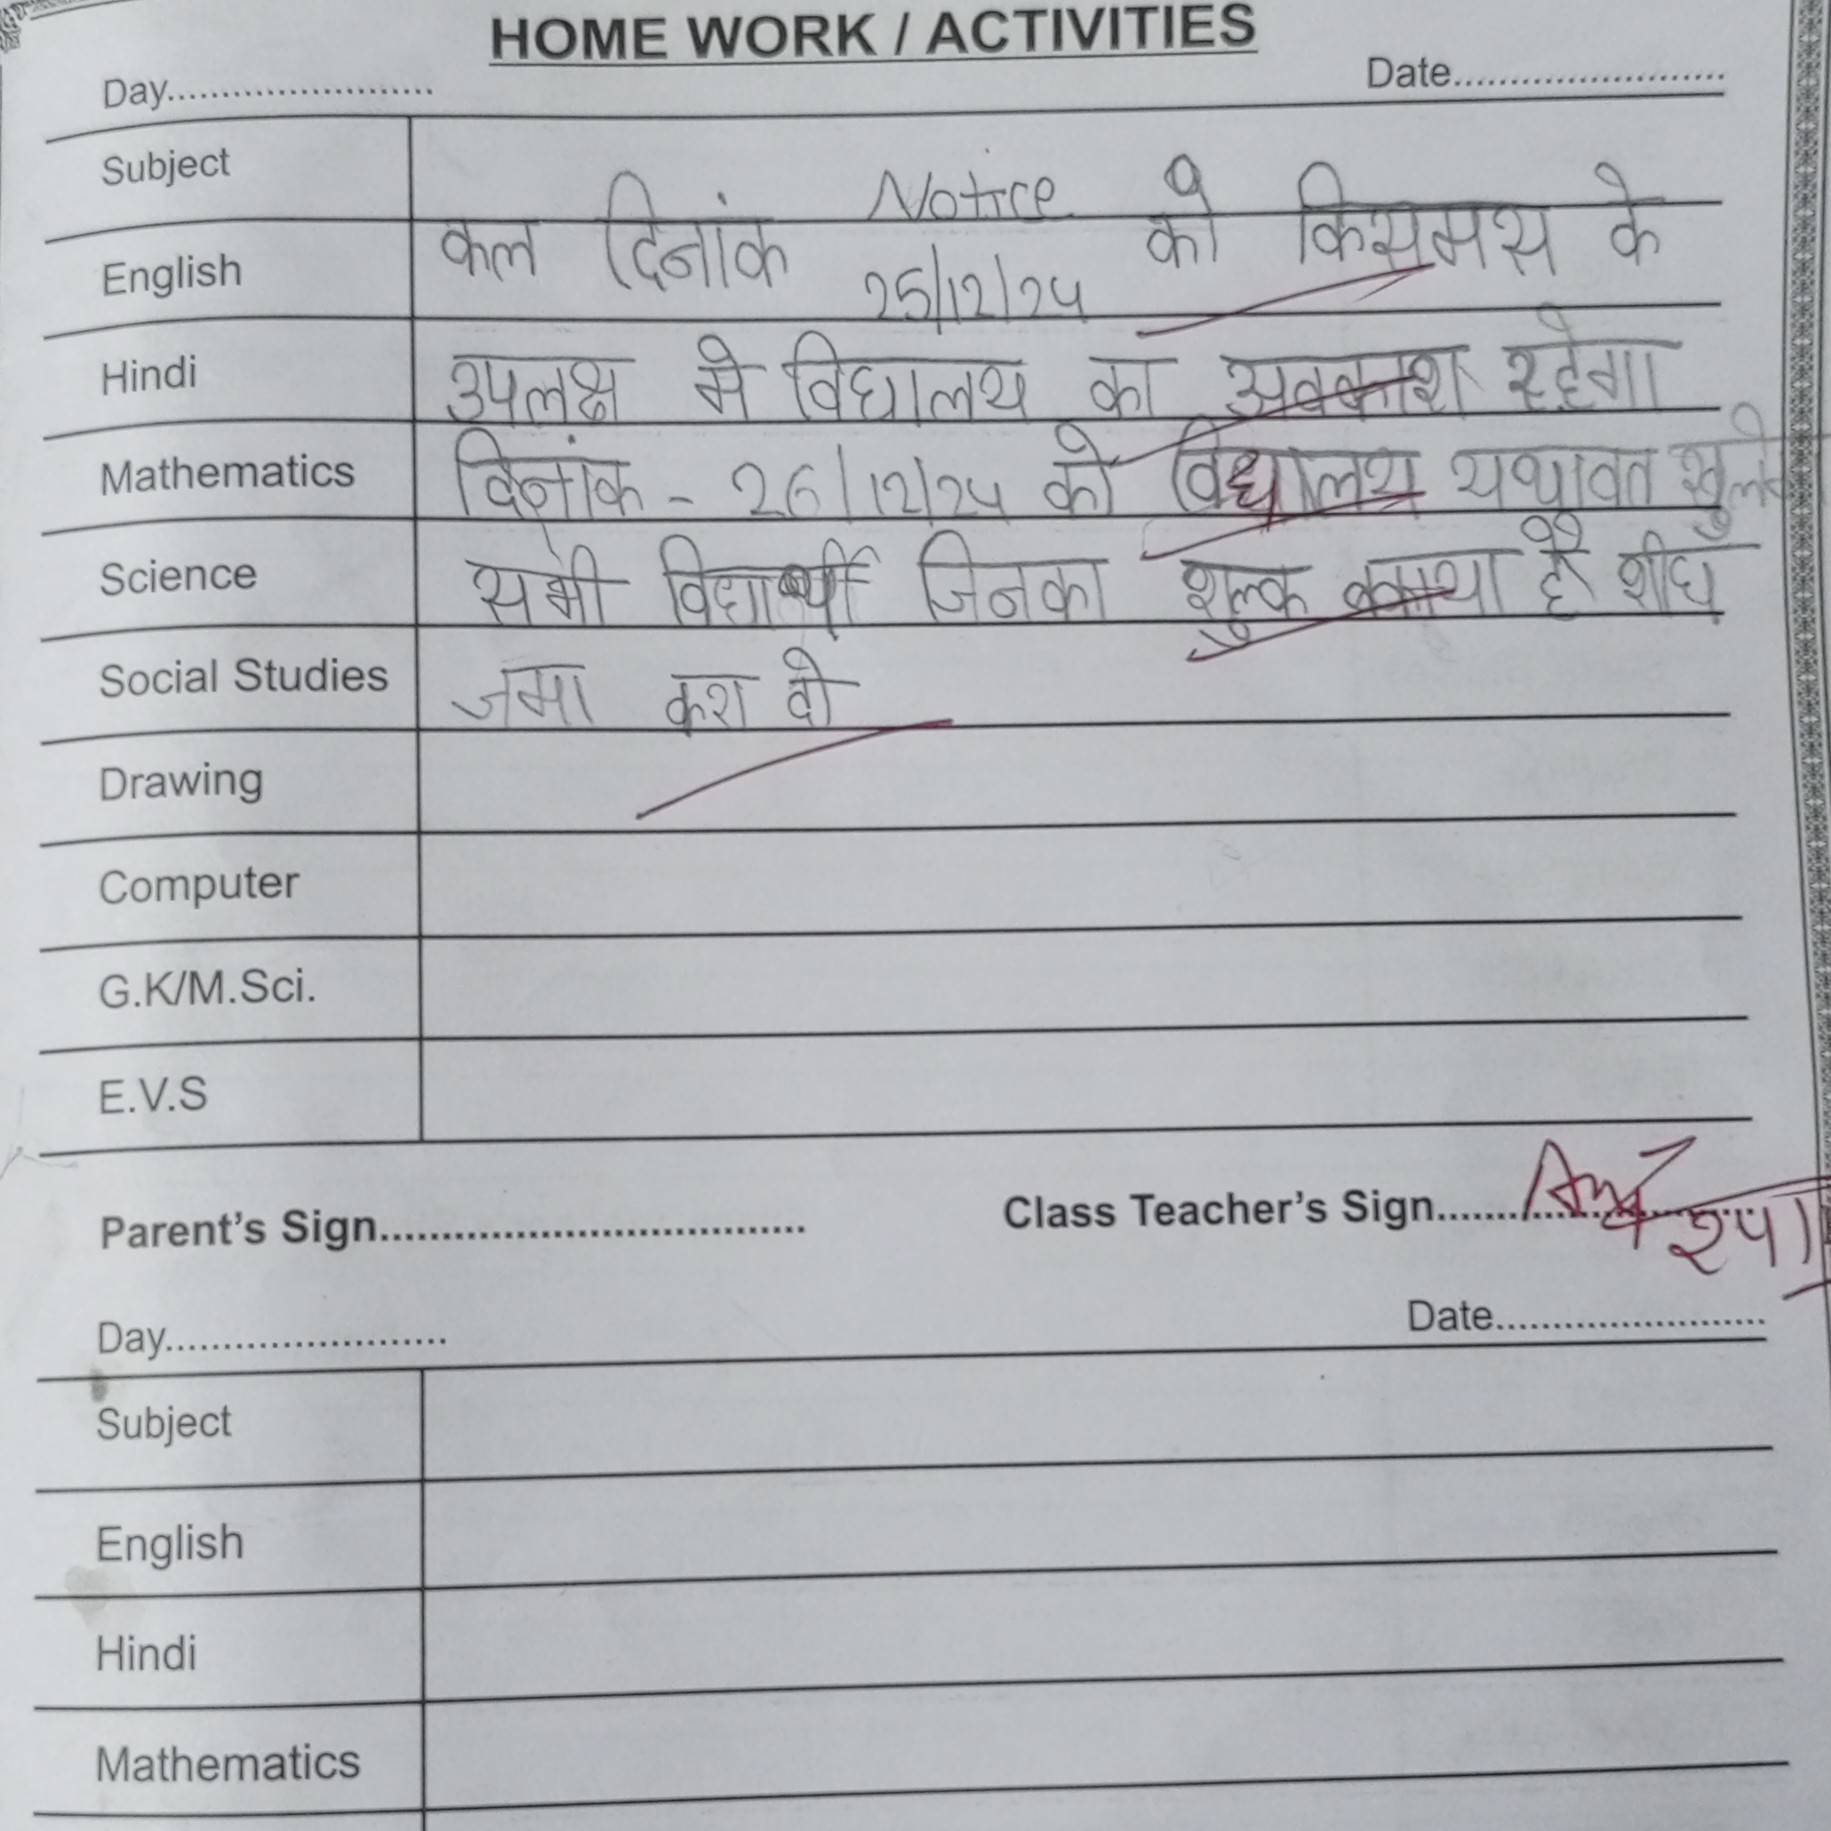 HOME WORK / ACTIVITIES
Day........................ Date........................
Subject Notice
English कल दिनांक 25/12/24 को किसमस के
Hindi उपलक्ष मे विद्यालय का अवकाश रहेगा
Mathematics दिनांक - 26/12/24 को विद्यालय यथावत
Science सभी विद्यार्थी जिनका शुल्क बकाया है शीघ्र
Social Studies जमा करा दे
Drawing
Computer
G.K/M.Sci.
E.V.S
Parent's Sign.................................... Class Teacher's Sign.......
Day........................ Date........................
Subject
English
Hindi
Mathematics